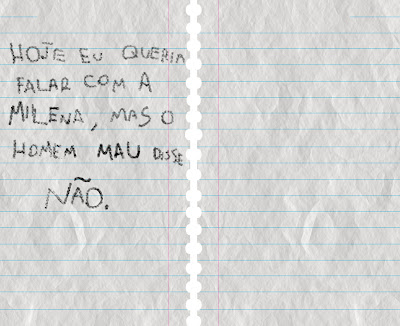 HOJE EU QUERIA
FALAR COM A
MILENA, MAS O
HOMEM MAU DISSE
NÃO.